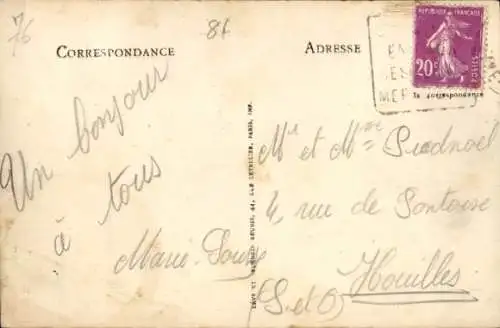 76
86
CORRESPONDANCE
ADRESSE
REPUBLIQUE FRANÇAISE
20c
POSTES
EN
MER
Un bonjour
à tous
Marie-Louise
Mr et Mme Piednoël
4, rue de Pontoise
Houilles
(S. et O)